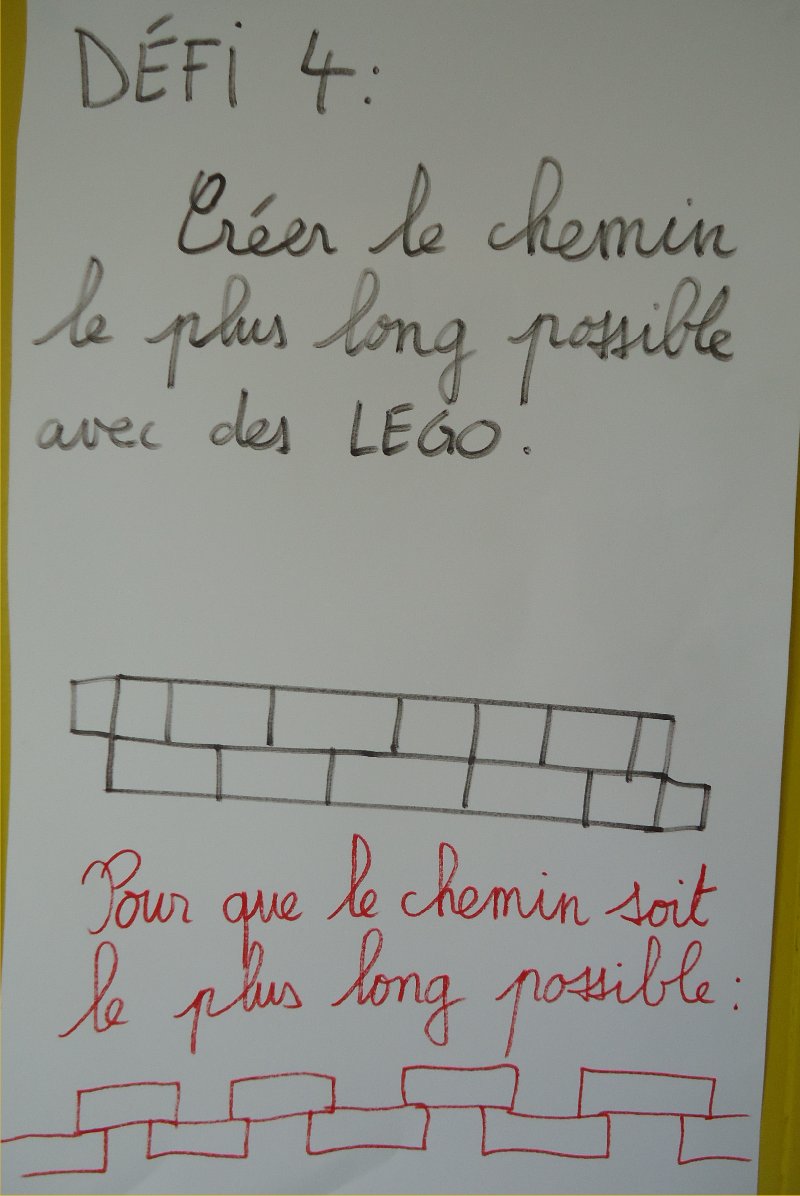 DÉFi 4:
Créer le chemin
le plus long possible
avec des LEGO.
Pour que le chemin soit
le plus long possible: